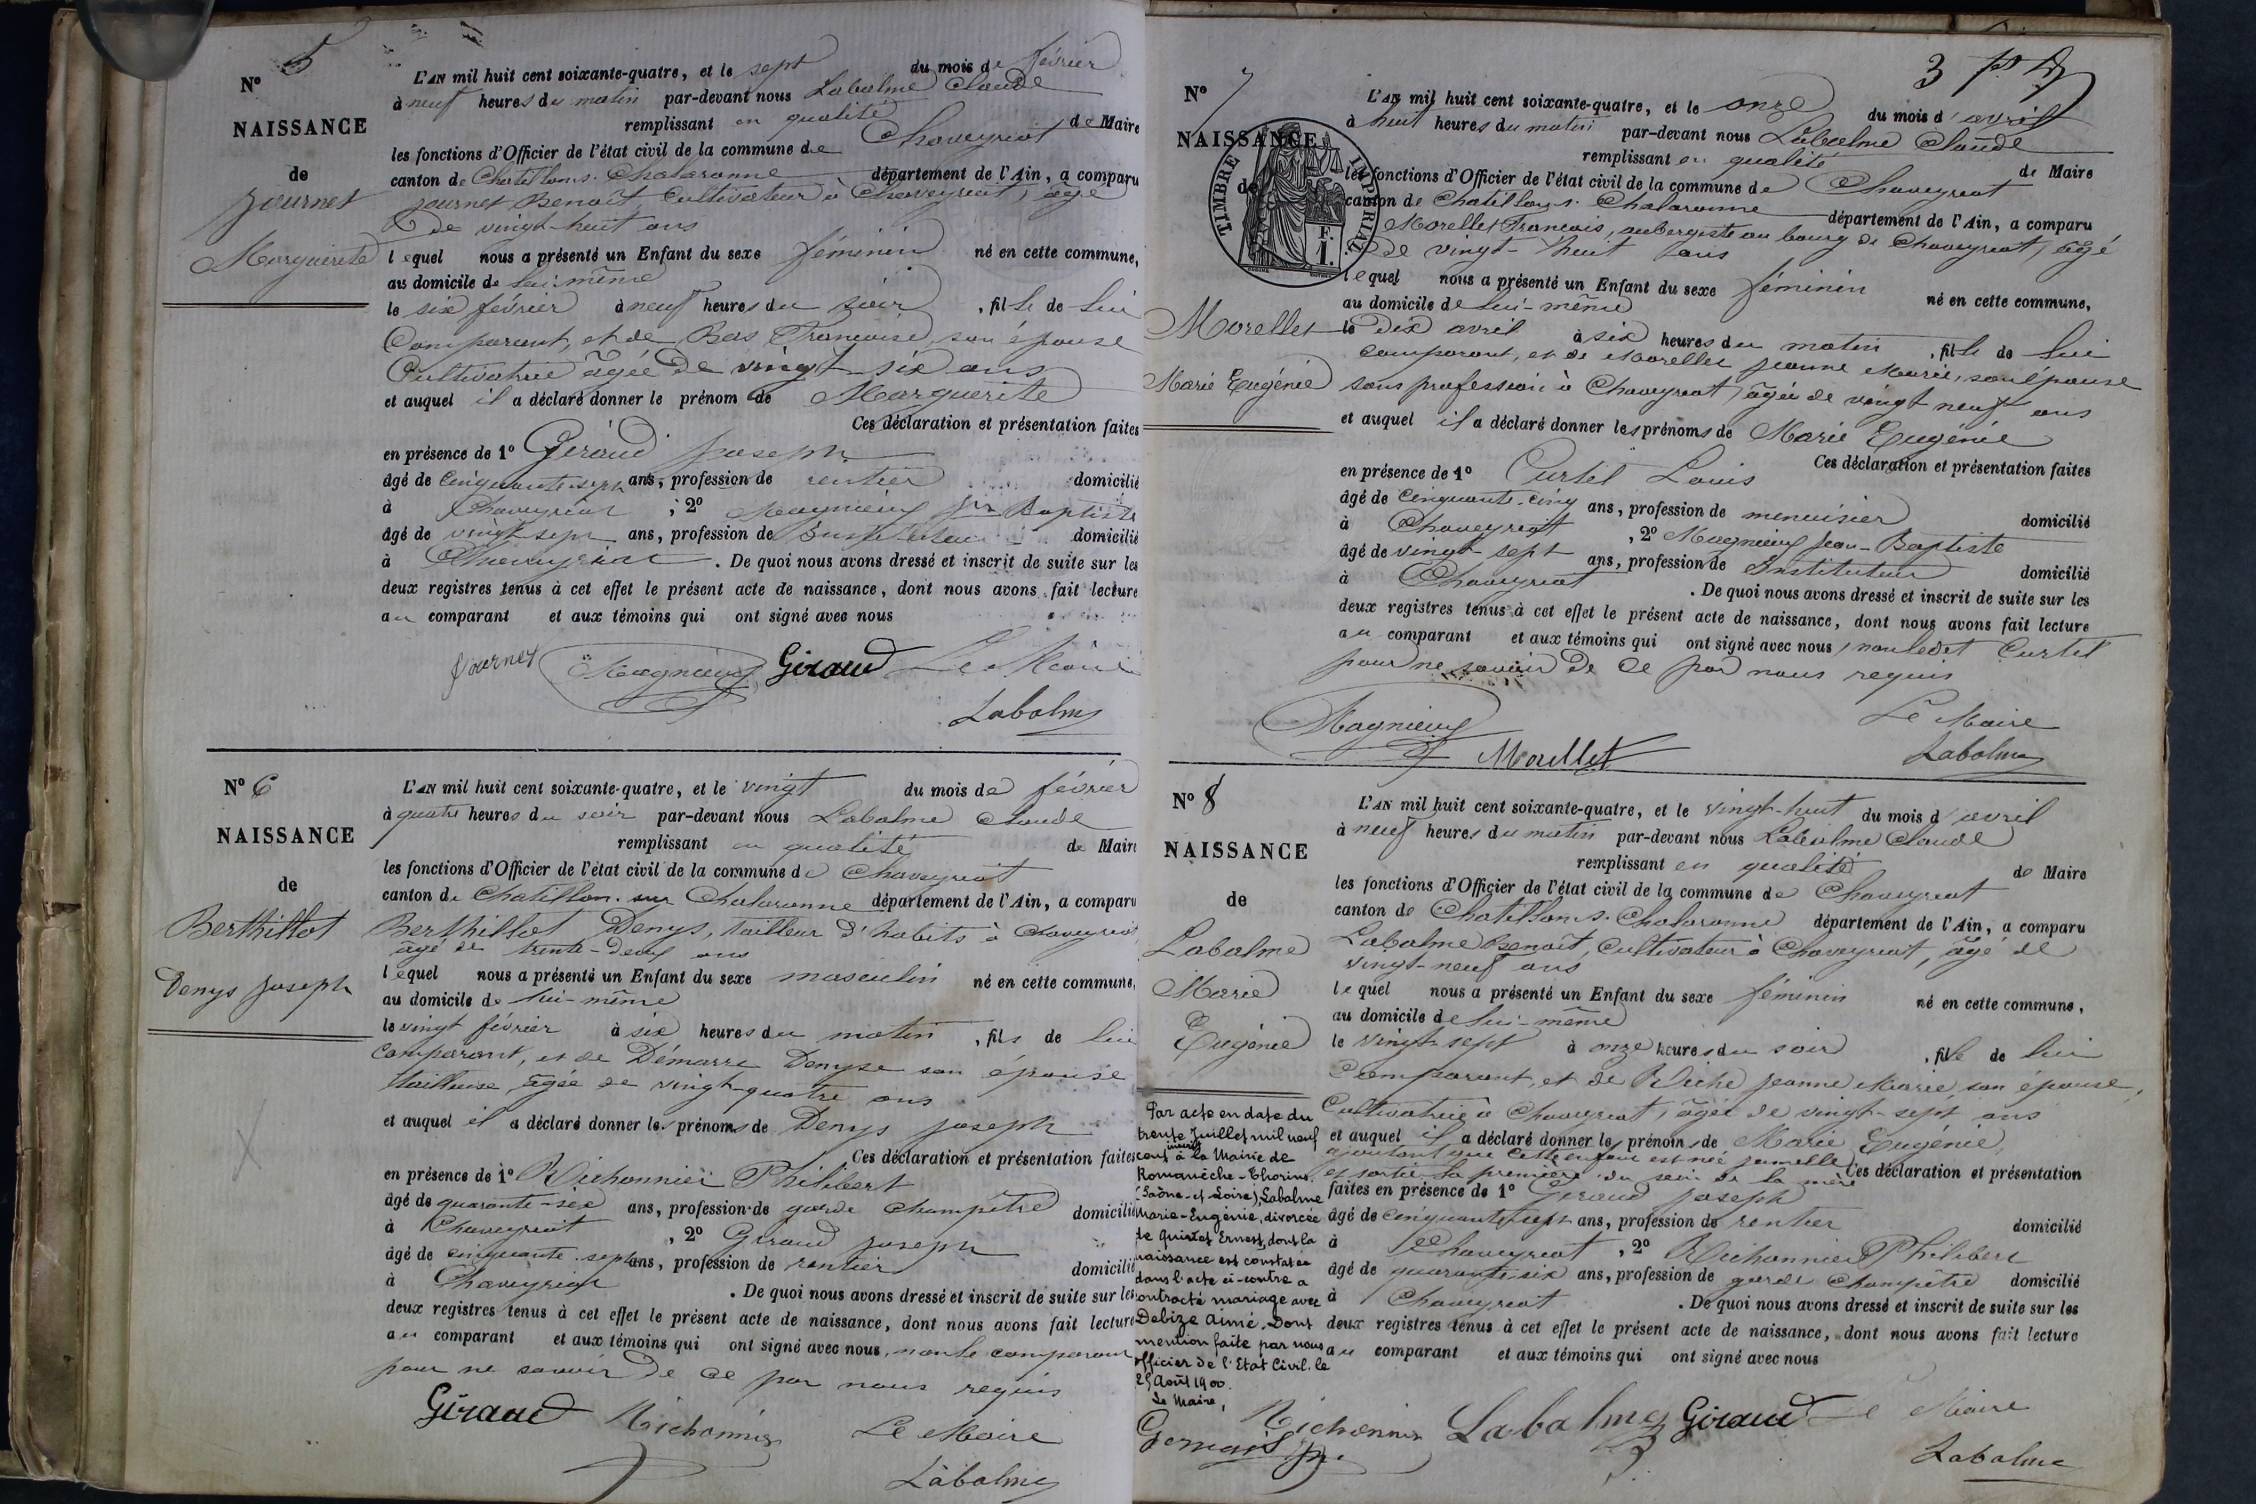 N° 5
NAISSANCE
de
Journet
Marguerite
L'AN mil huit cent soixante-quatre, et le sept du mois de février
à neuf heures du matin par-devant nous Labalme Claude
remplissant en qualité de Maire
les fonctions d'Officier de l'état civil de la commune de Chaveyriat
canton de Chatillon s. Chalaronne département de l'Ain, a comparu
Journet Benoît cultivateur à Chaveyriat, âgé
de vingt-huit ans
lequel nous a présenté un Enfant du sexe féminin né en cette commune,
au domicile de lui-même
le six février à neuf heures du soir, fille de lui
comparant, et de Bas Françoise, son épouse
cultivatrice âgée de vingt six ans
et auquel il a déclaré donner le prénom de Marguerite
Ces déclaration et présentation faites
en présence de 1° Géraud Joseph
âgé de cinquante-sept ans, profession de rentier domicilié
à Chaveyriat ; 2° Magnieux Jn Baptiste
âgé de vingt sept ans, profession de Instituteur domicilié
à Chaveyriat. De quoi nous avons dressé et inscrit de suite sur les
deux registres tenus à cet effet le présent acte de naissance, dont nous avons fait lecture
au comparant et aux témoins qui ont signé avec nous
Journet Magnieux Giraud Le Maire
Labalme
N° 6
NAISSANCE
de
Berthillot
Denys Joseph
L'AN mil huit cent soixante-quatre, et le vingt du mois de février
à quatre heures du soir par-devant nous Labalme Claude
remplissant en qualité de Maire
les fonctions d'Officier de l'état civil de la commune de Chaveyriat
canton de Chatillon sur Chalaronne département de l'Ain, a comparu
Berthillot Denys, tailleur d'habits à Chaveyriat
âgé de trente-deux ans
lequel nous a présenté un Enfant du sexe masculin né en cette commune,
au domicile de lui-même
le vingt février à six heures du matin, fils de lui
comparant, et de Démarre Denyse son épouse
tailleuse âgée de vingt-quatre ans
et auquel il a déclaré donner les prénoms de Denys Joseph
Ces déclaration et présentation faites
en présence de 1° Richonnier Philibert
âgé de quarante-six ans, profession de garde champêtre domicilié
à Chaveyriat, 2° Géraud Joseph
âgé de cinquante-sept ans, profession de rentier domicilié
à Chaveyriat. De quoi nous avons dressé et inscrit de suite sur les
deux registres tenus à cet effet le présent acte de naissance, dont nous avons fait lecture
au comparant et aux témoins qui ont signé avec nous, non le comparant
pour ne savoir de ce par nous requis
Giraud Richonnier Le Maire
Labalme
3
N° 7
NAISSANCE
de
TIMBRE IMPERIAL
F.
1.
Morellet
Marie Eugénie
L'AN mil huit cent soixante-quatre, et le onze du mois d'avril
à huit heures du matin par-devant nous Labalme Claude
remplissant en qualité de Maire
les fonctions d'Officier de l'état civil de la commune de Chaveyriat
canton de Chatillon s. Chalaronne département de l'Ain, a comparu
Morellet François, aubergiste au bourg de Chaveyriat, âgé
de vingt-huit ans
lequel nous a présenté un Enfant du sexe féminin né en cette commune,
au domicile de lui-même
le dix avril à six heures du matin, fille de lui
comparant, et de Morellet Jeanne Marie, son épouse
sans profession à Chaveyriat, âgée de vingt neuf ans
et auquel il a déclaré donner les prénoms de Marie Eugénie
Ces déclaration et présentation faites
en présence de 1° Curtet Louis
âgé de cinquante-cinq ans, profession de menuisier domicilié
à Chaveyriat, 2° Magnieux Jean-Baptiste
âgé de vingt sept ans, profession de Instituteur domicilié
à Chaveyriat. De quoi nous avons dressé et inscrit de suite sur les
deux registres tenus à cet effet le présent acte de naissance, dont nous avons fait lecture
au comparant et aux témoins qui ont signé avec nous, non ledit Curtet
pour ne savoir de ce par nous requis
Magnieux Morellet Le Maire
Labalme
N° 8
NAISSANCE
de
Labalme
Marie
Eugénie
L'AN mil huit cent soixante-quatre, et le vingt-huit du mois d'avril
à neuf heures du matin par-devant nous Labalme Claude
remplissant en qualité de Maire
les fonctions d'Officier de l'état civil de la commune de Chaveyriat
canton de Chatillon s. Chalaronne département de l'Ain, a comparu
Labalme Benoît, cultivateur à Chaveyriat, âgé de
vingt-neuf ans
lequel nous a présenté un Enfant du sexe féminin né en cette commune,
au domicile de lui-même
le vingt sept à onze heures du soir, fille de lui
comparant, et de Riche Jeanne Marie, son épouse,
cultivatrice à Chaveyriat, âgée de vingt-sept ans
et auquel il a déclaré donner les prénoms de Marie Eugénie
ajoutant que cette enfant est née jumelle
et sortie la première du sein de la mère Ces déclaration et présentation
faites en présence de 1° Géraud Joseph
âgé de cinquante sept ans, profession de rentier domicilié
à Chaveyriat, 2° Richonnier Philibert
âgé de quarante six ans, profession de garde champêtre domicilié
à Chaveyriat. De quoi nous avons dressé et inscrit de suite sur les
deux registres tenus à cet effet le présent acte de naissance, dont nous avons fait lecture
au comparant et aux témoins qui ont signé avec nous
Par acte en date du
trente Juillet mil neuf
cent à la Mairie de
Romanèche-Thorins
(Saône-et-Loire), Labalme
Marie-Eugénie, divorcée
de Quintet Ernest, dont la
naissance est constatée
dans l'acte ci-contre a
contracté mariage avec
Debize Aimé. Dont
mention faite par nous
officier de l'Etat Civil, le
Août 1900.
Le Maire,
Richonnier Labalme Giraud Le Maire
Labalme